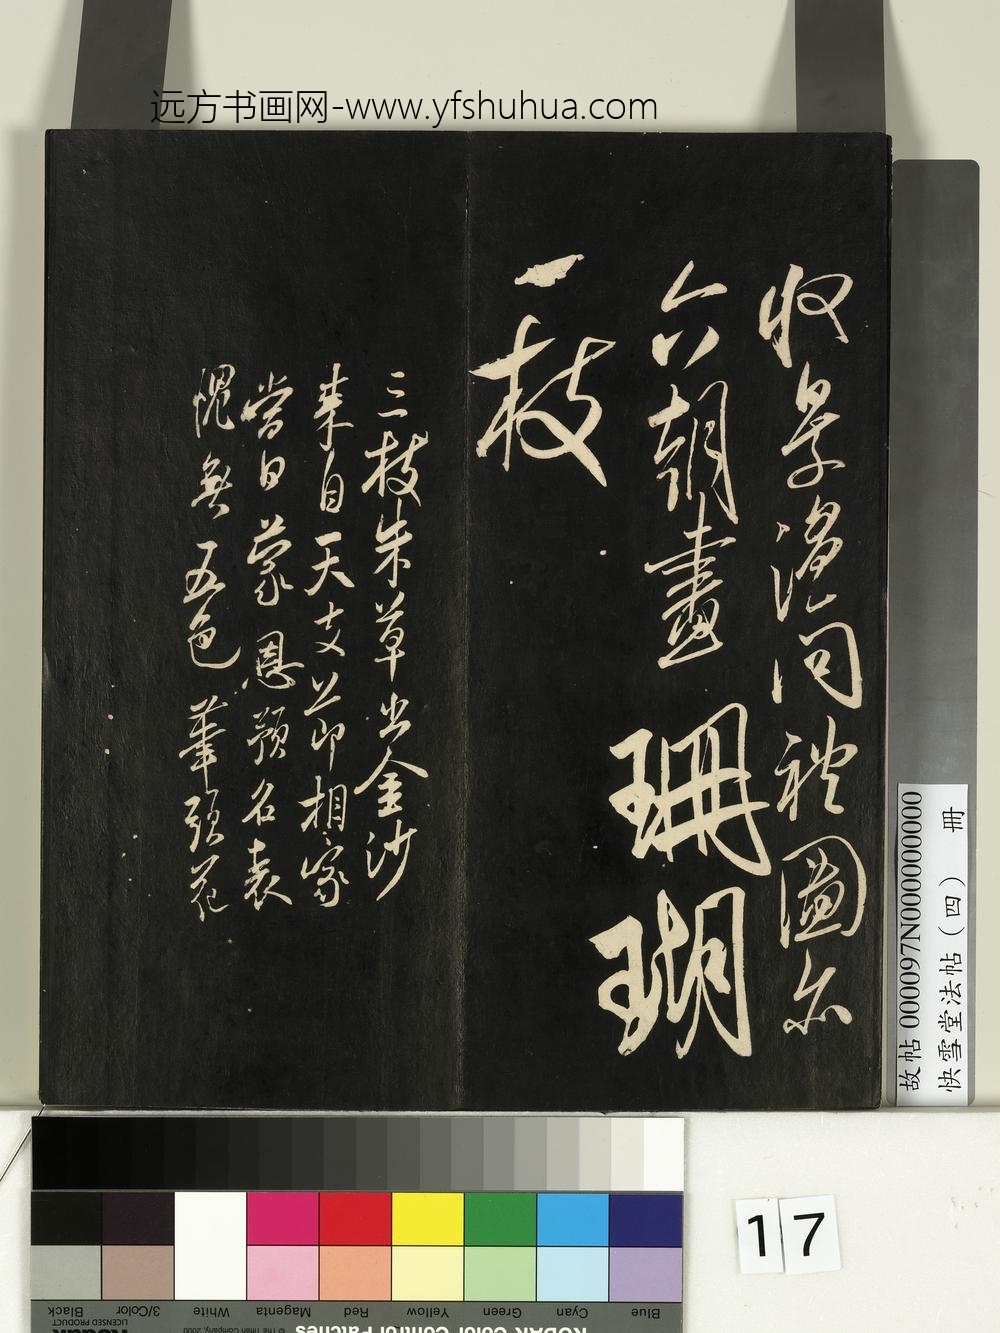 远方书画网-www.yfshuhua.com
收景溫問禮圖亦
六朝畫珊瑚
一枝
三枝朱草出金沙
来自天支節相家
當日蒙恩預名表
愧無五色筆頭花
故帖 000097N000000000
快雪堂法帖（四） 冊
17
Black
3/Color
White
Magenta
Red
Yellow
Green
Cyan
Blue
LICENSED PRODUCT
© The Tiffen Company, 2000
KODAK Color Control Patches